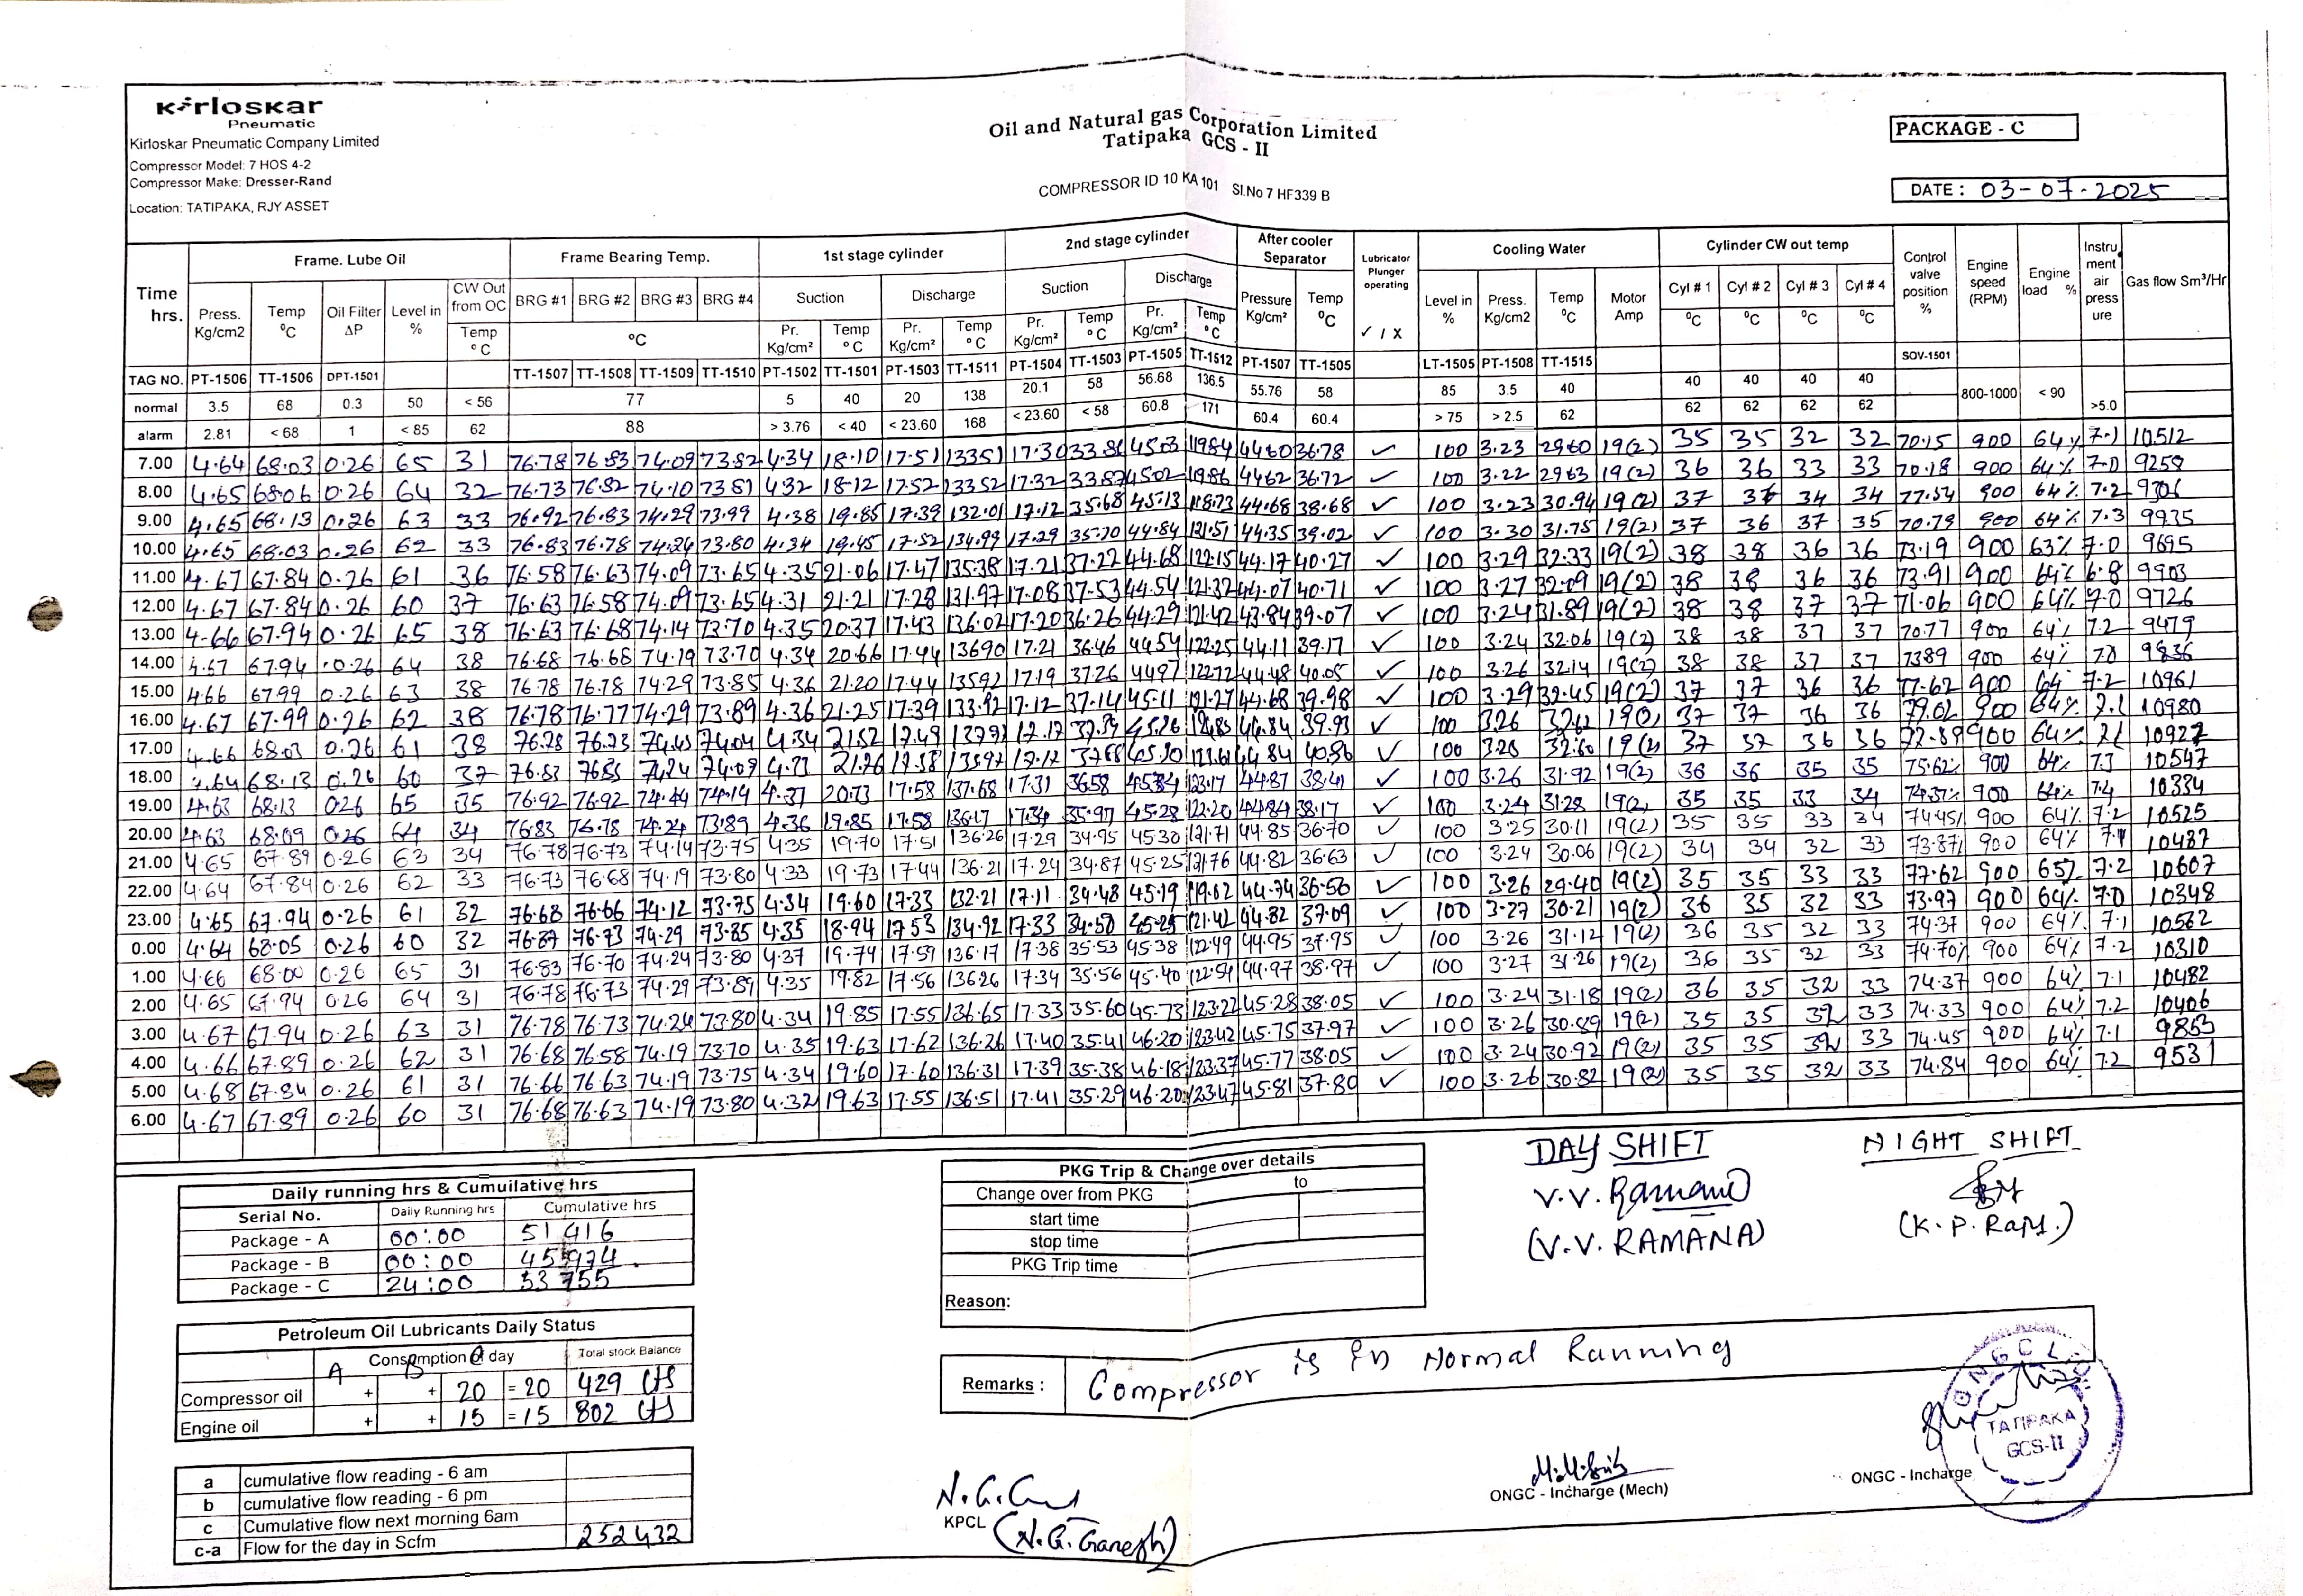 Kirloskar
Pneumatic
Kirloskar Pneumatic Company Limited
Compressor Model: 7 HOS 4-2
Compressor Make: Dresser-Rand
Location: TATIPAKA, RJY ASSET
Oil and Natural gas Corporation Limited
Tatipaka GCS - II
COMPRESSOR ID 10 KA 101 Sl.No 7 HF339 B
PACKAGE - C
DATE : 03-07-2025
Time hrs. Frame. Lube Oil Frame Bearing Temp. 1st stage cylinder 2nd stage cylinder After cooler Separator Lubricator Plunger operating ✓ / X Cooling Water Cylinder CW out temp Control valve position % Engine speed (RPM) Engine load % Instru ment air press ure Gas flow Sm³/Hr
Press. Kg/cm2 Temp ⁰C Oil Filter ΔP Level in % CW Out from OC Temp ° C BRG #1 BRG #2 BRG #3 BRG #4 ⁰C Suction Discharge Suction Discharge Pressure Kg/cm² Temp ⁰C Level in % Press. Kg/cm2 Temp ⁰C Motor Amp Cyl # 1 Cyl # 2 Cyl # 3 Cyl # 4
Pr. Kg/cm² Temp ° C Pr. Kg/cm² Temp ° C Pr. Kg/cm² Temp ° C Pr. Kg/cm² Temp ° C ⁰C ⁰C ⁰C ⁰C
TAG NO. PT-1506 TT-1506 DPT-1501 TT-1507 TT-1508 TT-1509 TT-1510 PT-1502 TT-1501 PT-1503 TT-1511 PT-1504 TT-1503 PT-1505 TT-1512 PT-1507 TT-1505 LT-1505 PT-1508 TT-1515 SOV-1501
normal 3.5 68 0.3 50 < 56 77 5 40 20 138 20.1 58 56.68 136.5 55.76 58 85 3.5 40 40 40 40 40 800-1000 < 90
alarm 2.81 < 68 1 < 85 62 88 > 3.76 < 40 < 23.60 168 < 23.60 < 58 60.8 171 60.4 60.4 > 75 > 2.5 62 62 62 62 62 >5.0
7.00 4.64 68.03 0.26 65 31 76.78 76.83 74.09 73.82 4.34 18.10 17.51 13351 17.30 33.86 4503 11984 4460 36.78 ✓ 100 3.23 2960 19(2) 35 35 32 32 70.15 900 64% 7.1 10512
8.00 4.65 68.06 0.26 64 32 76.73 76.82 74.10 7381 432 18.12 17.52 13352 17.32 33.87 4502 11986 4462 36.72 ✓ 100 3.22 2963 19(2) 36 36 33 33 70.18 900 64% 7.0 9258
9.00 4.65 68.13 0.26 63 33 76.92 76.83 74.29 73.99 4.38 19.85 17.39 132.01 17.12 35.68 45.13 118.73 44.68 38.68 ✓ 100 3.23 30.94 19(2) 37 36 34 34 77.54 900 64% 7.2 9706
10.00 4.65 68.03 0.26 62 33 76.83 76.78 74.24 73.80 4.34 19.45 17.52 134.99 17.29 35.70 44.84 121.51 44.35 39.02 ✓ 100 3.30 31.75 19(2) 37 36 37 35 70.79 900 64% 7.3 9935
11.00 4.67 67.84 0.26 61 36 76.58 76.63 74.09 73.65 4.35 21.06 17.47 135.38 17.21 37.22 44.68 122.15 44.17 40.27 ✓ 100 3.29 32.33 19(2) 38 38 36 36 73.19 900 63% 7.0 9695
12.00 4.67 67.84 0.26 60 37 76.63 76.58 74.09 73.65 4.31 21.21 17.28 131.97 17.08 37.53 44.54 121.32 44.07 40.71 ✓ 100 3.27 32.09 19(2) 38 38 36 36 73.91 900 64% 6.8 9903
13.00 4.66 67.94 0.26 65 38 76.63 76.68 74.14 73.70 4.35 20.37 17.43 136.02 17.20 36.26 44.29 121.42 43.84 39.07 ✓ 100 3.24 31.89 19(2) 38 38 37 37 71.06 900 64% 7.0 9726
14.00 4.67 67.94 0.26 64 38 76.68 76.68 74.19 73.70 4.34 20.66 17.44 13690 17.21 36.46 4454 122.25 44.11 39.17 ✓ 100 3.24 32.06 19(2) 38 38 37 37 70.77 900 64% 7.2 9479
15.00 4.66 67.99 0.26 63 38 76.78 76.78 74.29 73.85 4.36 21.20 17.44 13592 17.19 37.26 4497 122.72 44.48 40.05 ✓ 100 3.26 32.14 19(2) 38 38 37 37 7389 900 64% 7.0 9836
16.00 4.67 67.99 0.26 62 38 76.78 76.77 74.29 73.89 4.36 21.25 17.39 133.92 17.12 37.14 45.11 121.27 44.68 39.98 ✓ 100 3.29 32.45 19(2) 37 37 36 36 77.62 900 64 7.2 10961
17.00 4.66 68.03 0.26 61 38 76.78 76.73 74.45 74.04 4.34 21.52 17.49 17.17 44.84 39.93 ✓ 100 3.26 37 37 36 36 79.02 900 64% 7.1 10980
18.00 4.64 68.13 0.26 60 37 76.83 74.24 74.09 21.26 17.38 17.17 3768 45.20 44.84 40.86 ✓ 100 3.28 32.60 19(2) 37 37 36 36 900 64% 10927
19.00 4.63 68.13 026 65 35 76.92 76.92 74.49 74.19 4.37 20.73 17.58 137.68 17.31 3658 123.17 4487 38.41 ✓ 100 3.26 31.92 19(2) 36 36 35 35 75.62% 900 64% 7.3 10547
20.00 4.63 68.09 0.26 64 34 76.83 76.78 74.24 73.89 4.36 19.85 17.58 136.17 17.34 35.97 45.28 122.20 44.84 38.17 ✓ 100 3.24 31.28 19(2) 35 35 33 34 74.37% 900 64% 7.4 10334
21.00 4.65 67.89 0.26 63 34 76.78 76.73 74.14 73.75 435 19.70 17.51 136.26 17.29 34.95 45.30 121.71 44.85 36.70 ✓ 100 3.25 30.11 19(2) 35 35 33 34 74.45% 900 64% 7.2 10525
22.00 4.64 67.84 0.26 62 33 76.73 76.68 74.19 73.80 4.33 19.73 17.44 136.21 17.24 34.87 45.25 121.76 44.82 36.63 ✓ 100 3.24 30.06 19(2) 34 34 32 33 73.87% 900 64% 7.1 10487
23.00 4.65 67.94 0.26 61 32 76.68 76.66 74.12 73.75 4.34 19.60 17.33 132.21 17.11 34.48 45.19 119.62 44.74 36.56 ✓ 100 3.26 29.40 19(2) 35 35 33 33 77.62 900 65% 7.2 10607
0.00 4.64 68.05 0.26 60 32 76.87 76.73 74.29 73.85 4.35 18.94 17.53 134.92 17.33 34.50 45.25 121.42 44.82 37.09 ✓ 100 3.27 30.21 19(2) 36 35 32 33 73.97 900 64% 7.0 10348
1.00 4.66 68.00 0.26 65 31 76.83 76.70 74.24 73.80 4.37 19.74 17.59 136.17 17.38 35.53 45.38 122.49 44.95 37.95 ✓ 100 3.26 31.12 19(2) 36 35 32 33 74.37 900 64% 7.1 10562
2.00 4.65 67.94 0.26 64 31 76.78 76.73 74.29 73.89 4.35 19.82 17.56 13626 17.34 35.56 45.40 122.54 44.97 38.97 ✓ 100 3.27 31.26 19(2) 36 35 32 33 74.70% 900 64% 7.2 10310
3.00 4.67 67.94 0.26 63 31 76.78 76.73 74.24 73.80 4.34 19.85 17.55 136.65 17.33 35.60 45.73 123.22 45.28 38.05 ✓ 100 3.24 31.18 19(2) 36 35 32 33 74.37 900 64% 7.1 10482
4.00 4.66 67.89 0.26 62 31 76.68 76.58 74.19 73.70 4.35 19.63 17.62 136.26 17.40 35.41 46.20 123.42 45.75 37.97 ✓ 100 3.26 30.89 19(2) 35 35 32 33 74.33 900 64% 7.2 10406
5.00 4.68 67.84 0.26 61 31 76.66 76.63 74.19 73.75 4.34 19.60 17.60 136.31 17.39 35.38 46.18 123.37 45.77 38.05 ✓ 100 3.24 30.92 19(2) 35 35 32 33 74.45 900 64% 7.1 9853
6.00 4.67 67.89 0.26 60 31 76.68 76.63 74.19 73.80 4.32 19.63 17.55 136.51 17.41 35.29 46.20 123.47 45.81 37.80 ✓ 100 3.26 30.82 19(2) 35 35 32 33 74.84 900 64% 7.2 9531
Daily running hrs & Cumuilative hrs
Serial No. Daily Running hrs Cumulative hrs
Package - A 00:00 51416
Package - B 00:00 45974
Package - C 24:00 53755
Petroleum Oil Lubricants Daily Status
A B Consumption of day Total stock Balance
Compressor oil + + 20 = 20 429 Lts
Engine oil + + 15 = 15 802 Lts
a cumulative flow reading - 6 am
b cumulative flow reading - 6 pm
c Cumulative flow next morning 6am
c-a Flow for the day in Scfm 252432
PKG Trip & Change over details
Change over from PKG to
start time
stop time
PKG Trip time
Reason:
DAY SHIFT
V.V. Ramana
(V.V. RAMANA)
NIGHT SHIFT
(K. P. Raju.)
Remarks : Compressor is in Normal Running
KPCL
(N.G. Ganesh)
ONGC - Incharge (Mech)
ONGC - Incharge
ONGC
TATIPAKA
GCS-II